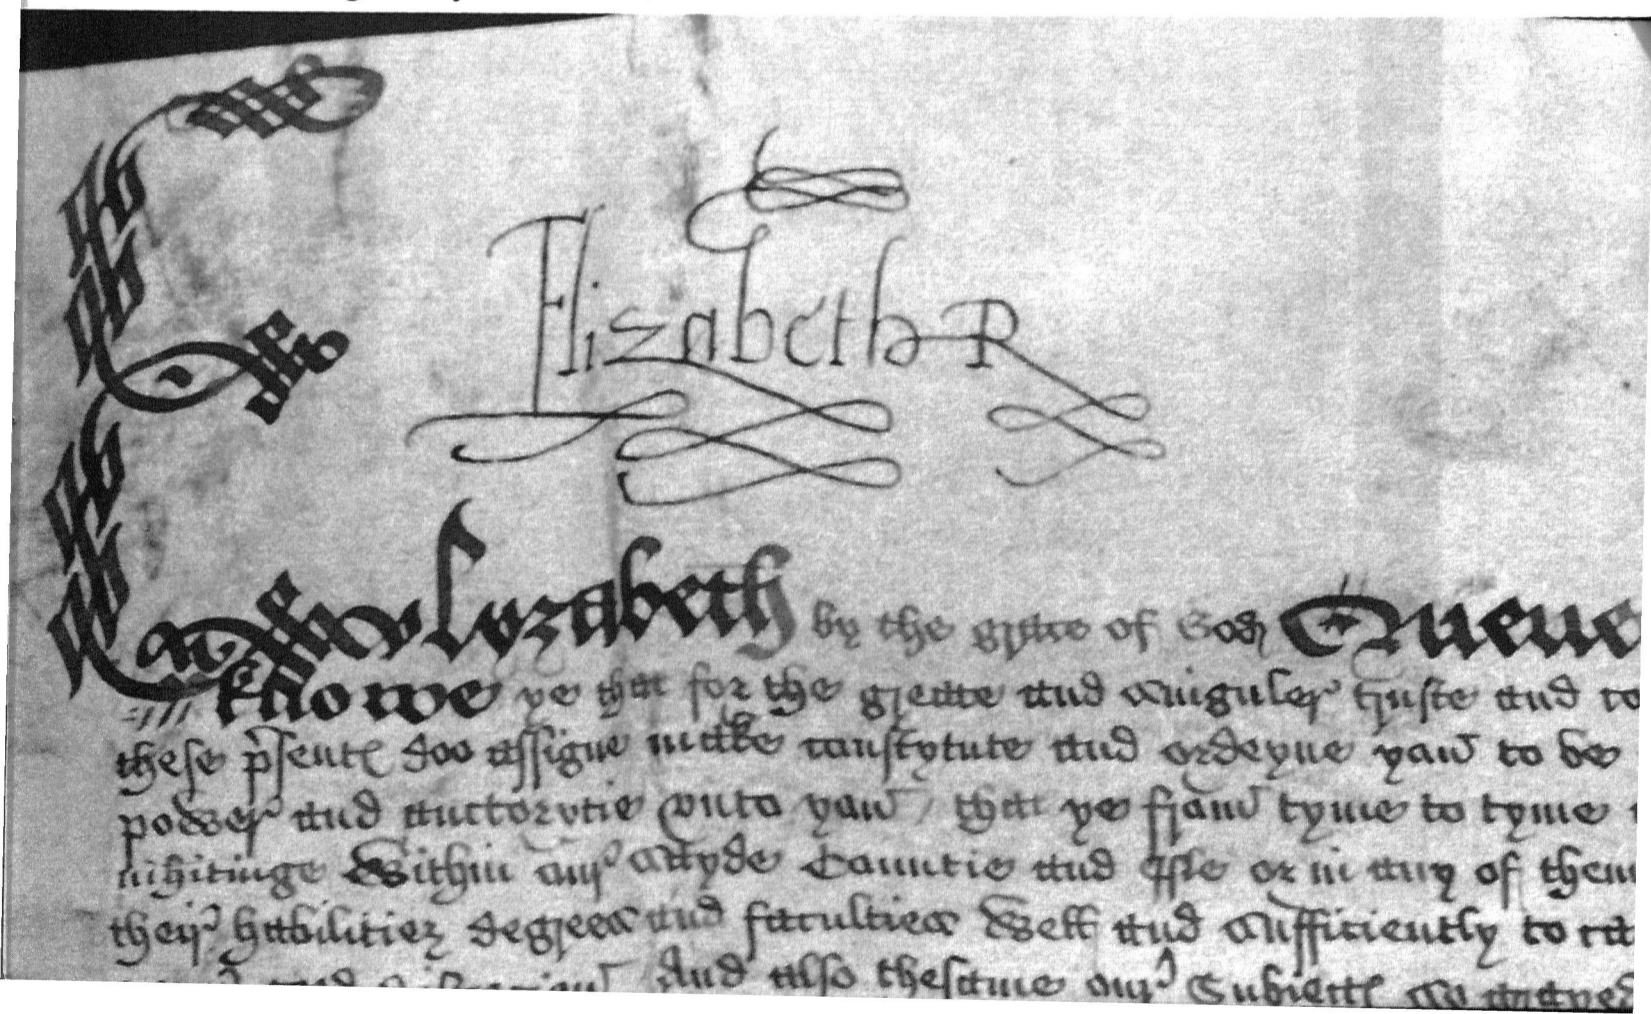 Elizabeth R
Elyzabeth by the grace of God Quene
knowe ye that for the greate and singuler truste and co
these p̄sentꝭ doo assigne make constytute and ordeyne yow to be
power and auctorytie vnto yow / that ye from tyme to tyme
inhitinge within our sayde Countie and Isle or in any of them
their habilitiez degrees and faculties well and sufficiently to
And also thesame our Subiectꝭ so